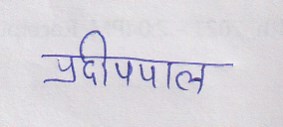 प्रदीपपाल